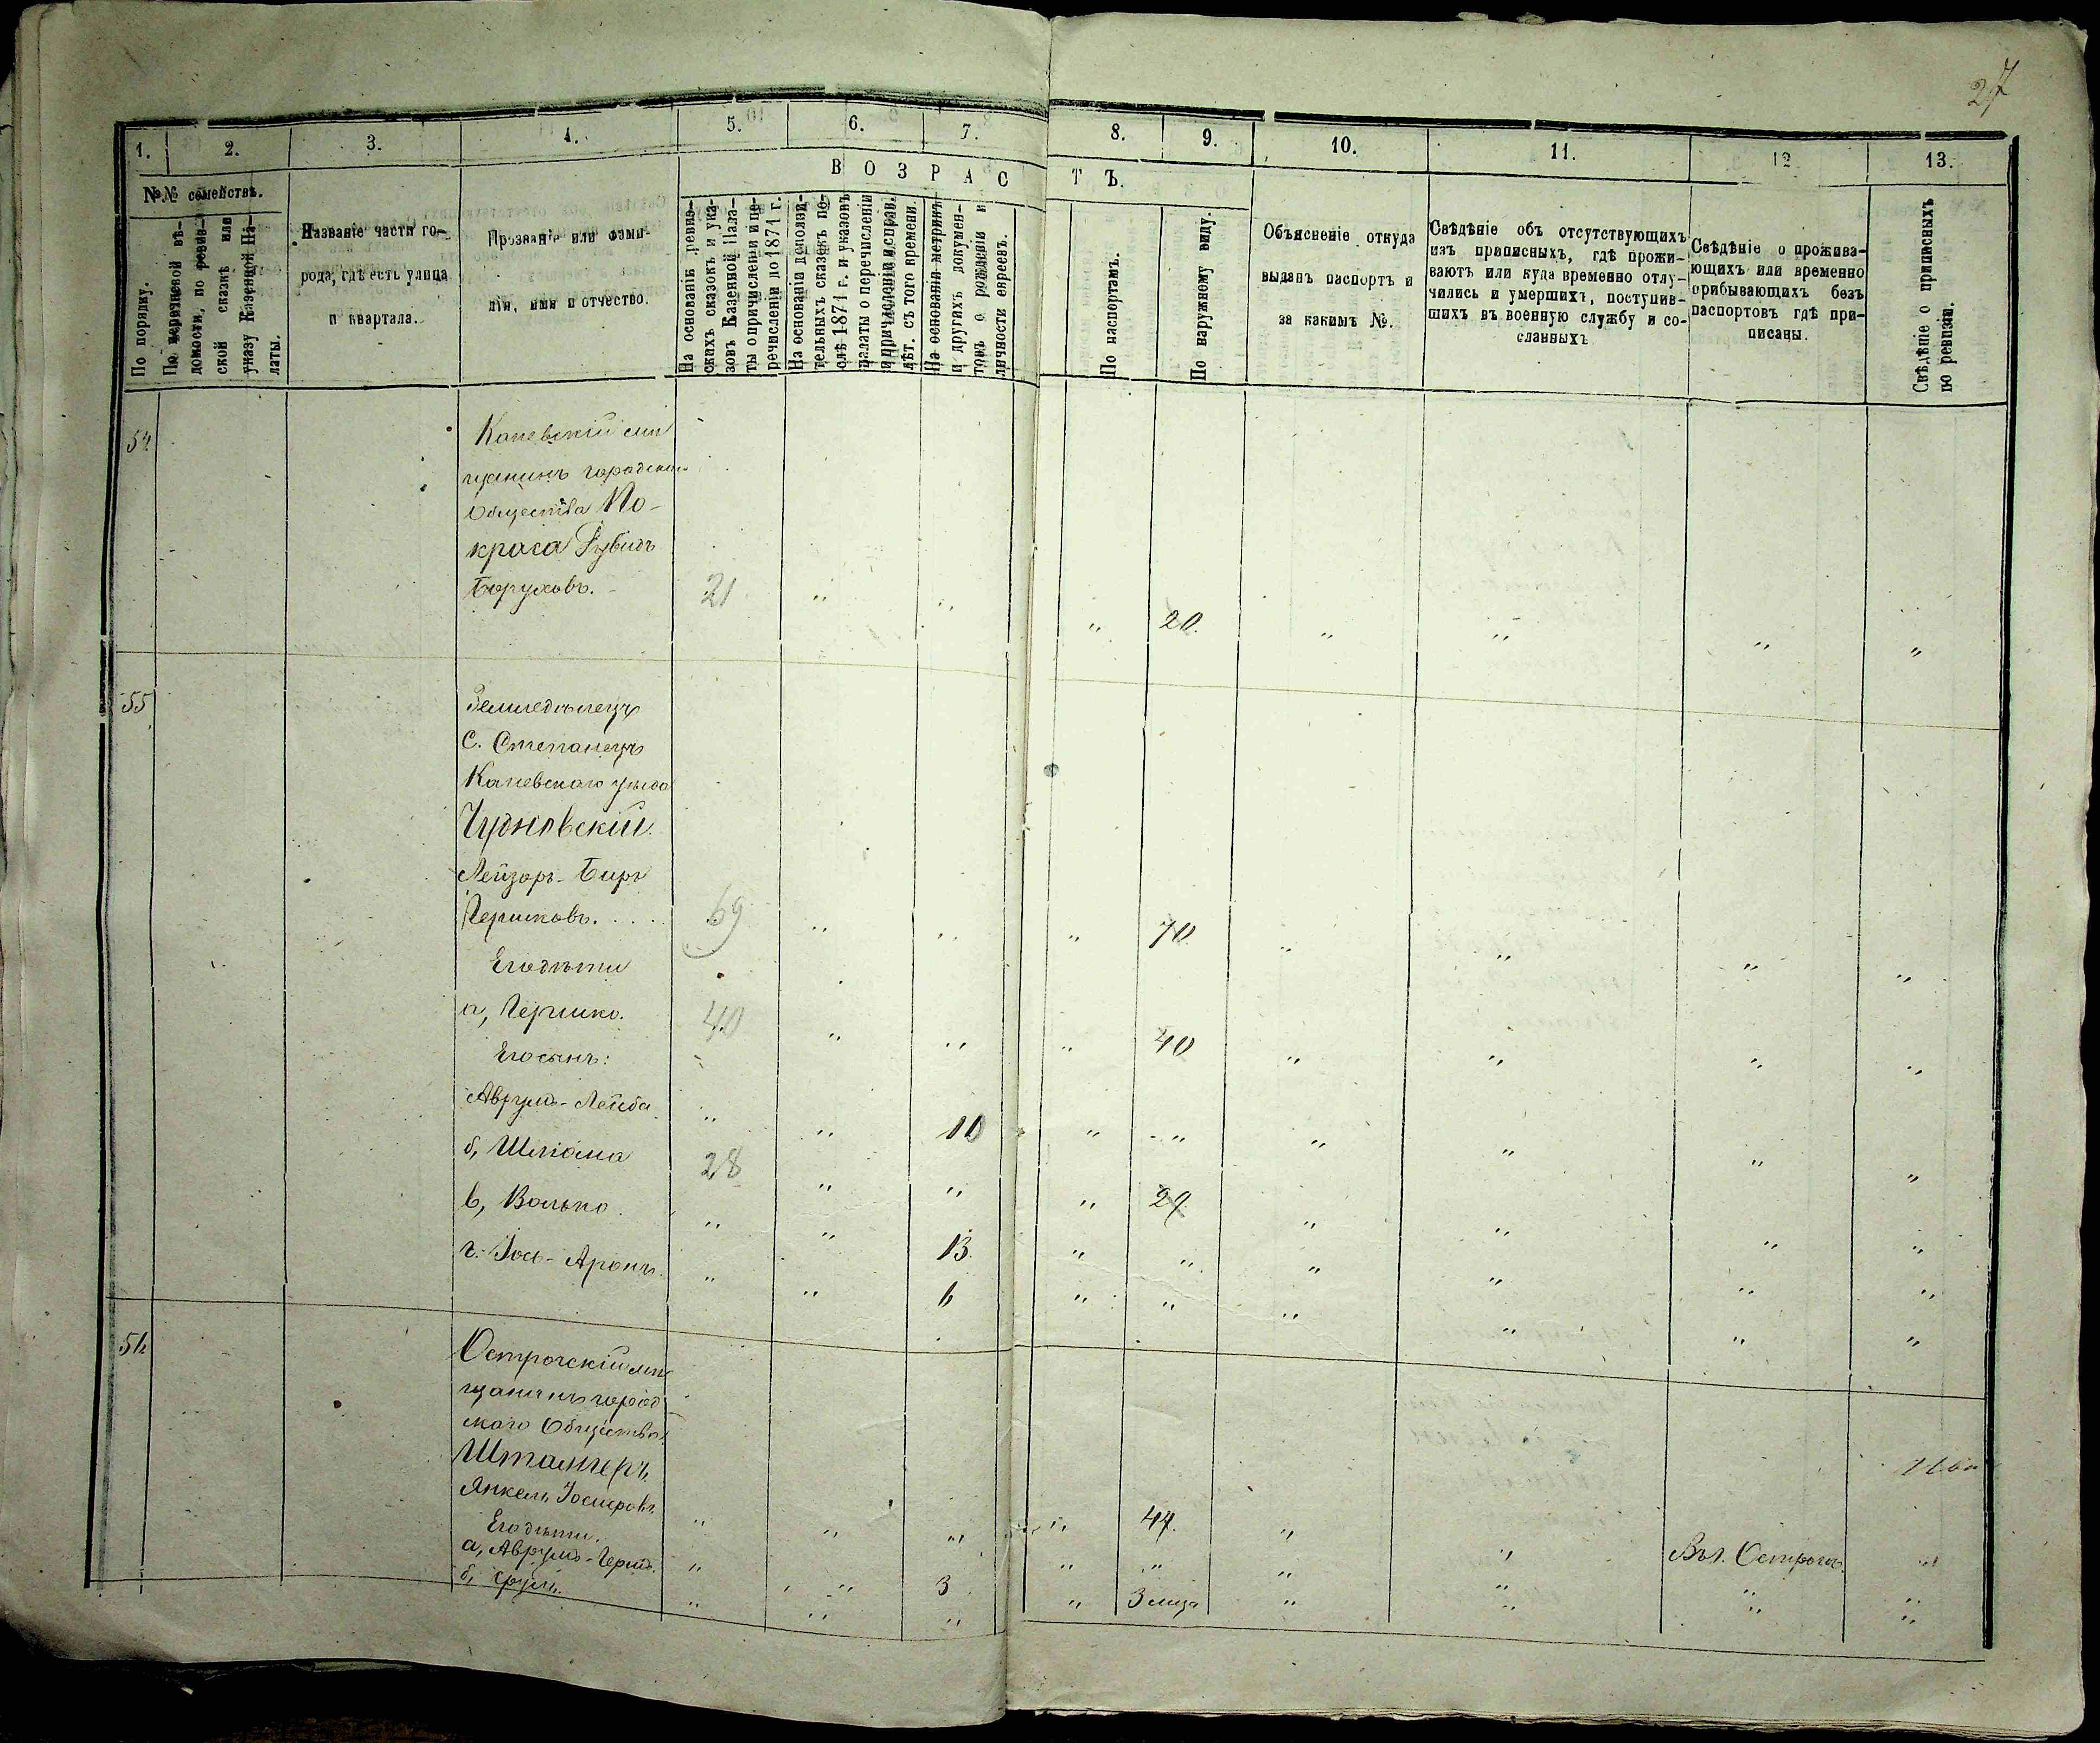 27
1. 2. 3. 4. 5. 6. 7. 8. 9. 10. 11. 12 13.
№№ семействъ.
ВОЗРАСТЪ.
По порядку.
По перечневой вѣ-
домости, по ревиз-
ской сказкѣ или
указу Казенной Па-
латы.
Названіе части го-
рода, гдѣ есть улица
и квартала.
Прозваніе или фами-
лія, имя и отчество.
На основаніи ревиз-
скихъ сказокъ и ука-
зовъ Казенной Пала-
ты о причисленіи и пе-
речисленіи до 1871 г.
На основаніи дополни-
тельныхъ сказокъ по-
слѣ 1871 г. и указовъ
палаты о перечисленіи
и причисленіи и справ.
лѣт. съ того времени.
На основаніи метрикъ
и другихъ докумен-
товъ о рожденіи и
личности евреевъ.
По паспортамъ.
По наружному виду.
Объясненіе откуда
выданъ паспортъ и
за какимъ №.
Свѣдѣніе объ отсутствующихъ
изъ приписныхъ, гдѣ прожи-
ваютъ или куда временно отлу-
чились и умершихъ, поступив-
шихъ въ военную службу и со-
сланныхъ
Свѣдѣніе о прожива-
ющихъ или временно
прибывающихъ безъ
паспортовъ гдѣ при-
писаны.
Свѣдѣніе о приписныхъ
по ревизіи.
54 Каневскій мѣ
щанинъ городскаго
Общества По-
краса Рувинъ
Боруховъ. 21 " " " 20. " " " "
55 Земледѣлецъ
С. Степанецъ
Каневскаго уѣзда
Чудновскій
Лейзоръ-Беръ
Гершковъ. . . . . 69 " " " 70 " " " "
Его дѣти
а, Гершко. 40 " " " 40 " " " "
Его сынъ:
Аврумъ-Лейба " " 10 " " " " " "
б, Шліома 28 " " " 29 " " " "
в, Волько. " " 13. " " " " " "
г. Іось-Аронъ. " " 6 " " " " " "
56 Острогскій мѣ
щанинъ город
скаго Общества
Янкель Іосиповъ " " " " 44. " " Въ г. Острогѣ. "
Его дѣти.
а, Аврумъ-Герш. " " 3 " " " " " "
б, Сруль. " " " " 3 мца " " " "